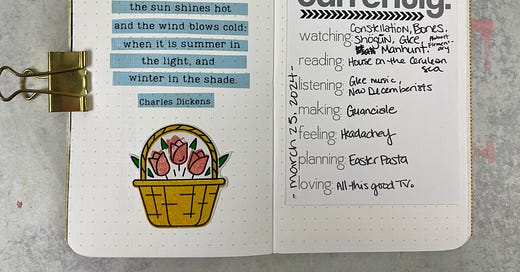 the sun shines hot
and the wind blows cold:
when it is summer in
the light, and
winter in the shade.
Charles Dickens
currently:
watching: Constellation, Bones,
Shōgun, Glee, Abbott
Manhunt. Elementary
reading: House on the Cerulean
Sea
listening: Glee music,
New Decemberists
making: Guanciale
feeling: Headachey
planning: Easter Pasta
loving: All this good TV.
- March 25, 2024 -